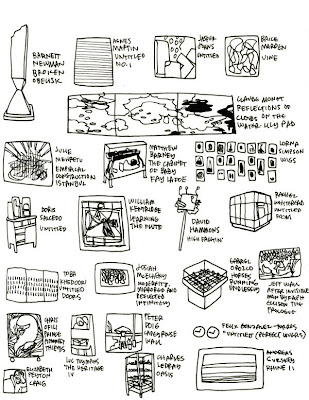 BARNETT
NEWMAN
BROKEN
OBELISK
AGNES
MARTIN
UNTITLED
NO. 1
JASPER
JOHNS
UNTITLED
BRICE
MARDEN
VINE
CLAUDE MONET
REFLECTIONS OF
CLOUDS ON THE
WATER LILY PAD
JULIE
MEHRETU
EMPIRICAL
CONSTRUCTION
ISTANBUL
MATTHEW
BARNEY
THE CABINET
OF BABY
FAY LAFOE
LORNA
SIMPSON
WIGS
DORIS
SALCEDO
UNTITLED
WILLIAM
KENTRIDGE
LEARNING
THE FLUTE
DAVID
HAMMONS
HIGH FALUTIN'
RACHEL
WHITEREAD
UNTITLED
ROOM
TOBA
KHEDOORI
UNTITLED
DOORS
JOSIAH
MCELHENY
MODERNITY,
MIRRORED AND
REFLECTED
INFINITELY
GABRIEL
OROZCO
HORSES
RUNNING
ENDLESSLY
JEFF WALL
AFTER INVISIBLE
MAN BY RALPH
ELLISON THE
PROLOGUE
CHRIS
OFILI
PRINCE
AMONGST
THIEVES
PETER
DOIG
LUC TUYMANS
THE HERITAGE
IV
FELIX GONZALEZ-TORRES
"UNTITLED" (PERFECT LOVERS)
ELIZABETH
PEYTON
CRAIG
CHARLES
LEDRAY
OASIS
ANDREAS
GURSKY
RHINE II